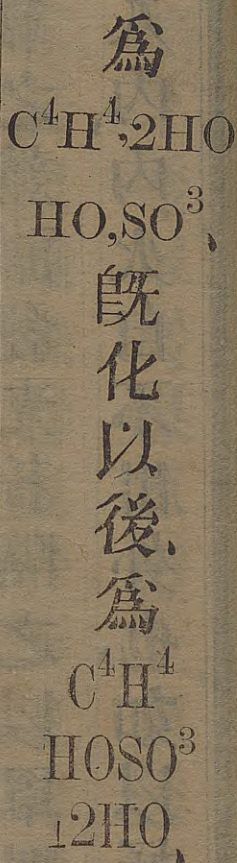 爲
C⁴H⁴,2HO
HO,SO³、
旣
化
以
後、
爲
C⁴H⁴
HOSO³
12HO、